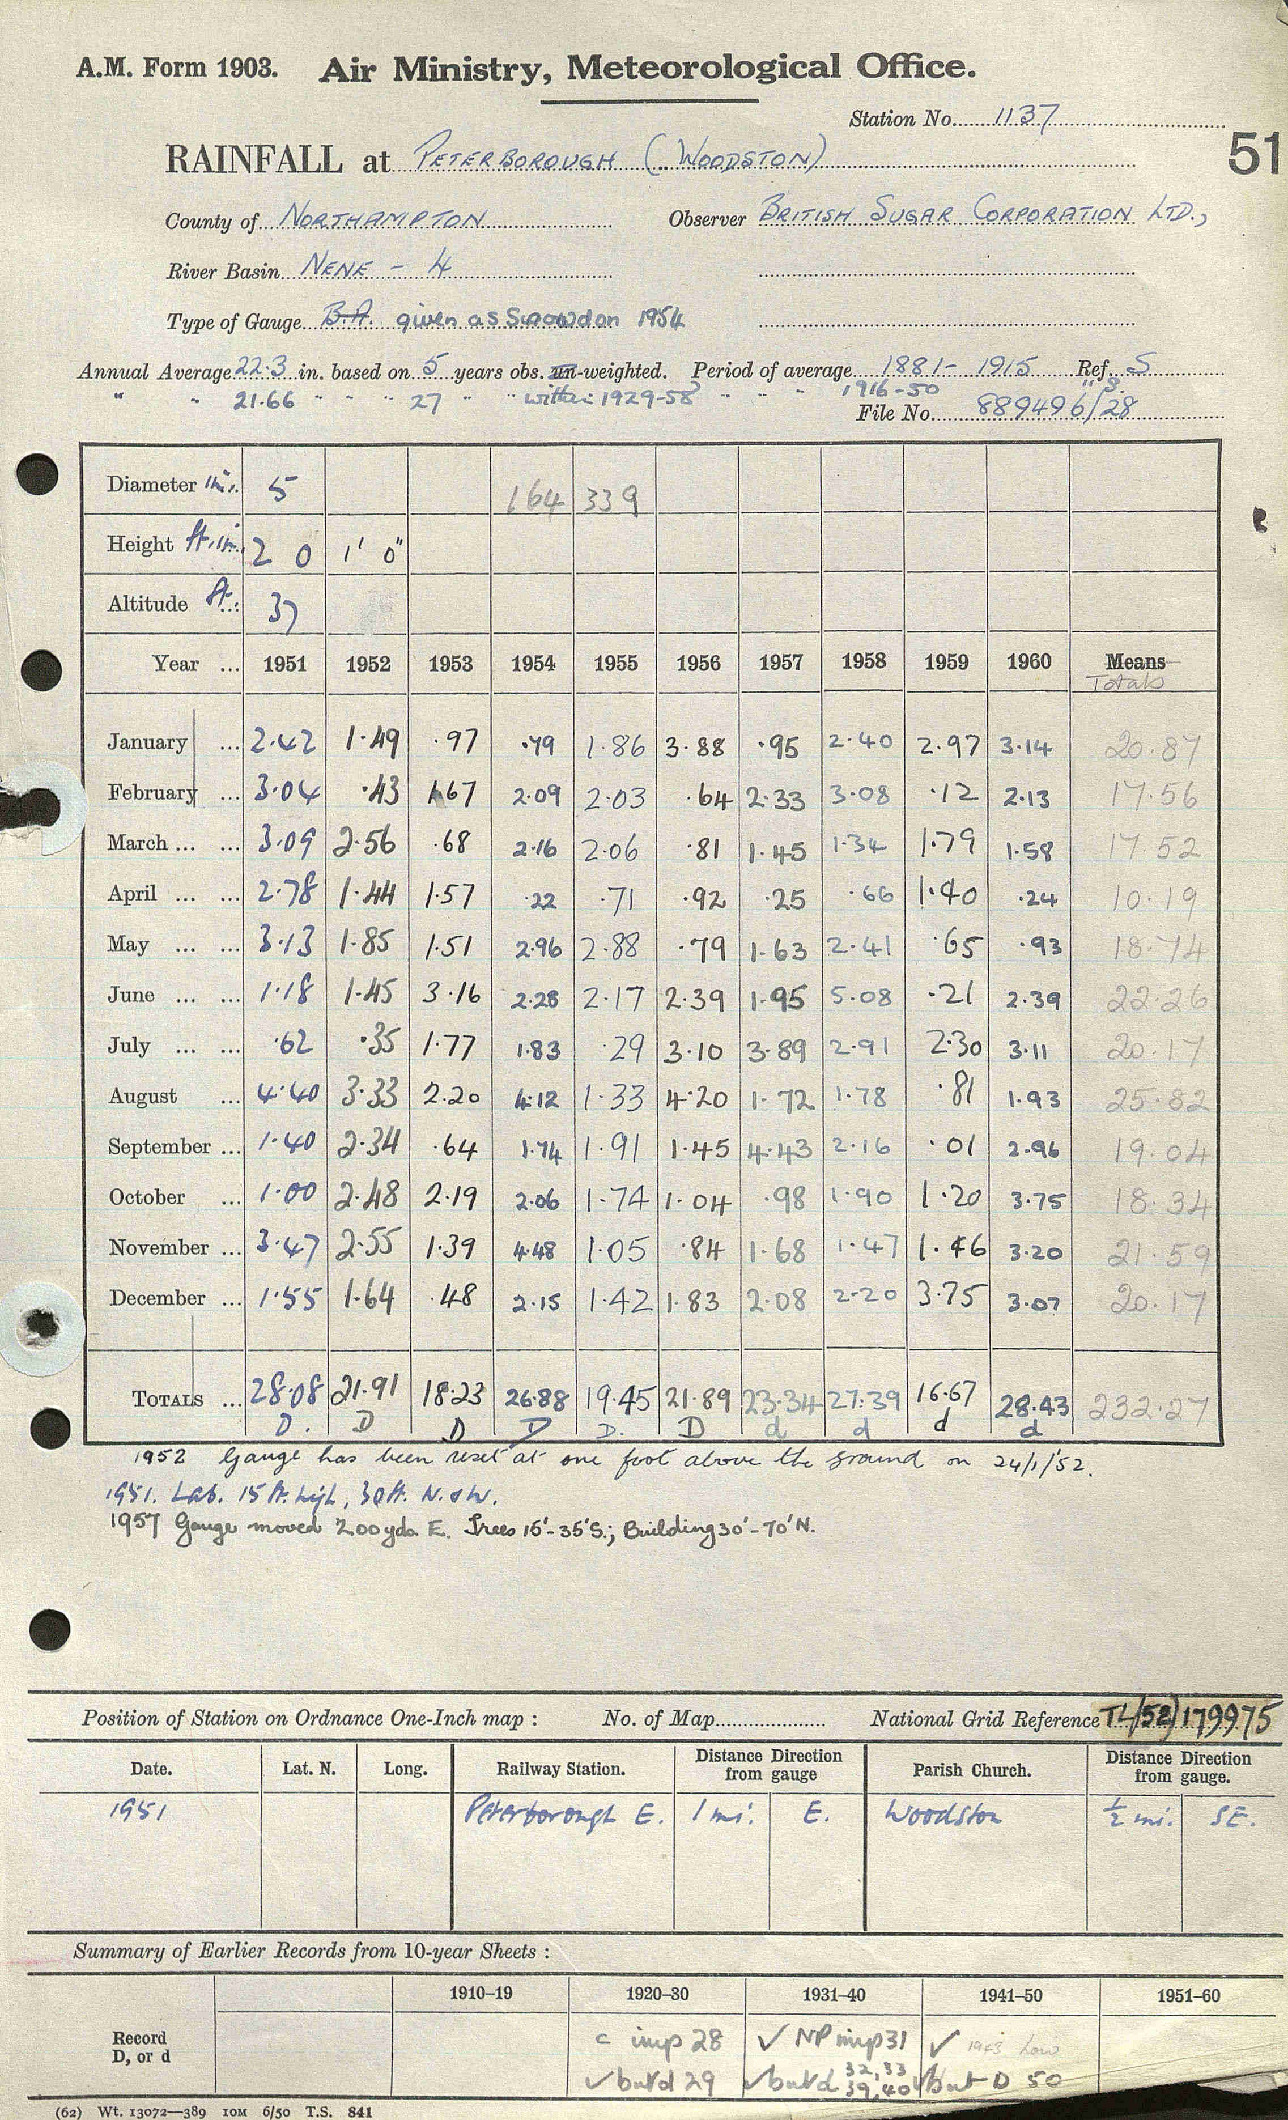 A.M. Form 1903. Air Ministry, Meteorological Office.
Station No. 1137
51
RAINFALL at PETERBOROUGH (WOODSTON)
County of NORTHAMPTON Observer BRITISH SUGAR CORPORATION LTD.,
River Basin NENE - 4
Type of Gauge B.A. given as Snowdon 1954
Annual Average 22.3 in. based on 5 years obs. un-weighted. Period of average 1881- 1915 Ref. S
" " 21.66 " " " 27 " " within 1929-58 " " " 1916-50 " S.
File No. 889496/28
Diameter ins. 5 164 339
Height ft. in. 2 0 1' 0"
Altitude ft. 37
Year ... 1951 1952 1953 1954 1955 1956 1957 1958 1959 1960 Means
Totals
January ... 2.42 1.49 .97 .79 1.86 3.88 .95 2.40 2.97 3.14 20.87
February ... 3.04 .43 1.67 2.09 2.03 .64 2.33 3.08 .12 2.13 17.56
March ... ... 3.09 2.56 .68 2.16 2.06 .81 1.45 1.34 1.79 1.58 17.52
April ... ... 2.78 1.44 1.57 .22 .71 .92 .25 .66 1.40 .24 10.19
May ... ... 3.13 1.85 1.51 2.96 2.88 .79 1.63 2.41 .65 .93 18.74
June ... ... 1.18 1.45 3.16 2.28 2.17 2.39 1.95 5.08 .21 2.39 22.26
July ... ... .62 .35 1.77 1.83 .29 3.10 3.89 2.91 2.30 3.11 20.17
August ... 4.40 3.33 2.20 4.12 1.33 4.20 1.72 1.78 .81 1.93 25.82
September ... 1.40 2.34 .64 1.74 1.91 1.45 4.43 2.16 .01 2.96 19.04
October ... 1.00 2.48 2.19 2.06 1.74 1.04 .98 1.90 1.20 3.75 18.34
November ... 3.47 2.55 1.39 4.48 1.05 .84 1.68 1.47 1.46 3.20 21.59
December ... 1.55 1.64 .48 2.15 1.42 1.83 2.08 2.20 3.75 3.07 20.17
TOTALS ... 28.08 21.91 18.23 26.88 19.45 21.89 23.34 27.39 16.67 28.43 232.27
D. D D D D. D d d d d
1952 Gauge has been reset at one foot above the ground on 24/1/52.
1951. Lab. 15 ft. high, 30 ft. N. & W.
1957 Gauge moved 200 yds. E. Trees 15'-35'S.; Building 30'-70'N.
Position of Station on Ordnance One-Inch map : No. of Map National Grid Reference TL/52/179975
Date. Lat. N. Long. Railway Station. Distance from gauge Direction Parish Church. Distance from gauge. Direction
1951 Peterborough E. 1 mi. E. Woodston ½ mi. SE.
Summary of Earlier Records from 10-year Sheets :
1910–19 1920–30 1931–40 1941–50 1951–60
Record D, or d
c imp 28 ✓ NP imp 31 ✓ 1943 Low
✓ but d 29 ✓ but d 32, 33 39, 40 ✓ but D 50
(62) Wt. 13072—389 10M 6/50 T.S. 841